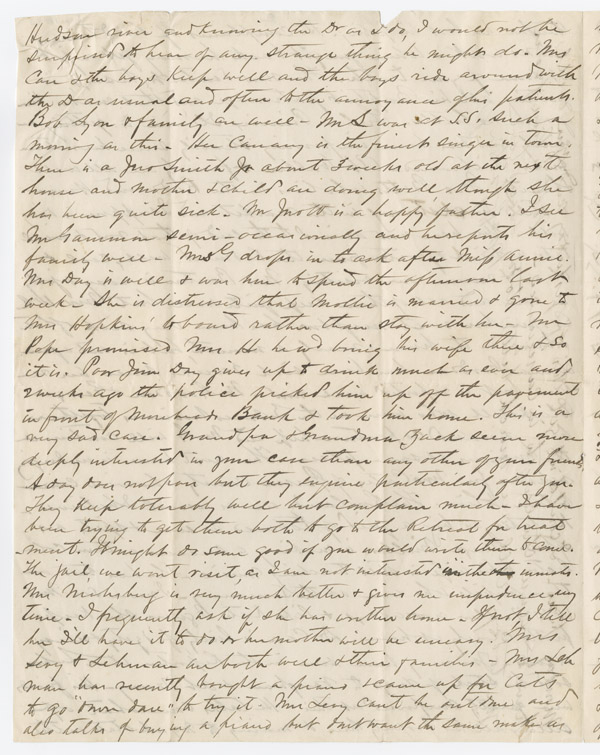 Hudson river and knowing the Dr as I do, I would not be
surprised to hear of any strange thing he might do. Mrs
Carr & the boys keep well and the boys ride around with
the Dr as usual and often to the annoyance of his patients.
Bob Lyon & family are well - Mr S was at S.S. such a
morning as this - Her Canary is the finest singer in town.
There is a Jno Smith Jr about 3 weeks old at the next
house and mother & child are doing well though she
has been quite sick. Mr Jno is a happy father. I see
Mr Gammon semi-occasionally and he reports his
family well - Mrs G drops in to ask after Miss Annie.
Mrs Day is well & was here to spend the afternoon last
week - She is distressed that Mollie is married & gone to
Mrs Hopkins' to board rather than stay with her - Mr
Pope promised Mrs H he wd bring his wife there & So
it is. Poor Jim Day gives up to drink much as ever and
2 weeks ago the police picked him up off the pavement
in front of Moreheads Bank & took him home. This is a
very sad case. Grandpa & Grandma Zack seem more
deeply interested in your case than any other of your friends,
A day does not pass but they enquire particularly after you
They keep tolerably well but complain much - I have
been trying to get them both to go to the Retreat for treat
ment. It might do some good if you would write them to come.
The jail we wont visit as I am not interested in the inmates.
Mrs is very much better & gives me impudence every
time - I frequently ask if she has written home - If not I tell
her I'll have it to do or her mother will be uneasy. Mrs
Levy & Lehman are both well & their families - Mrs Leh
man has recently bought a piano & came up for Cats
to go "down dare" to try it - Mrs Levy cant be out done and
also talks of buying a piano but dont want the same make as